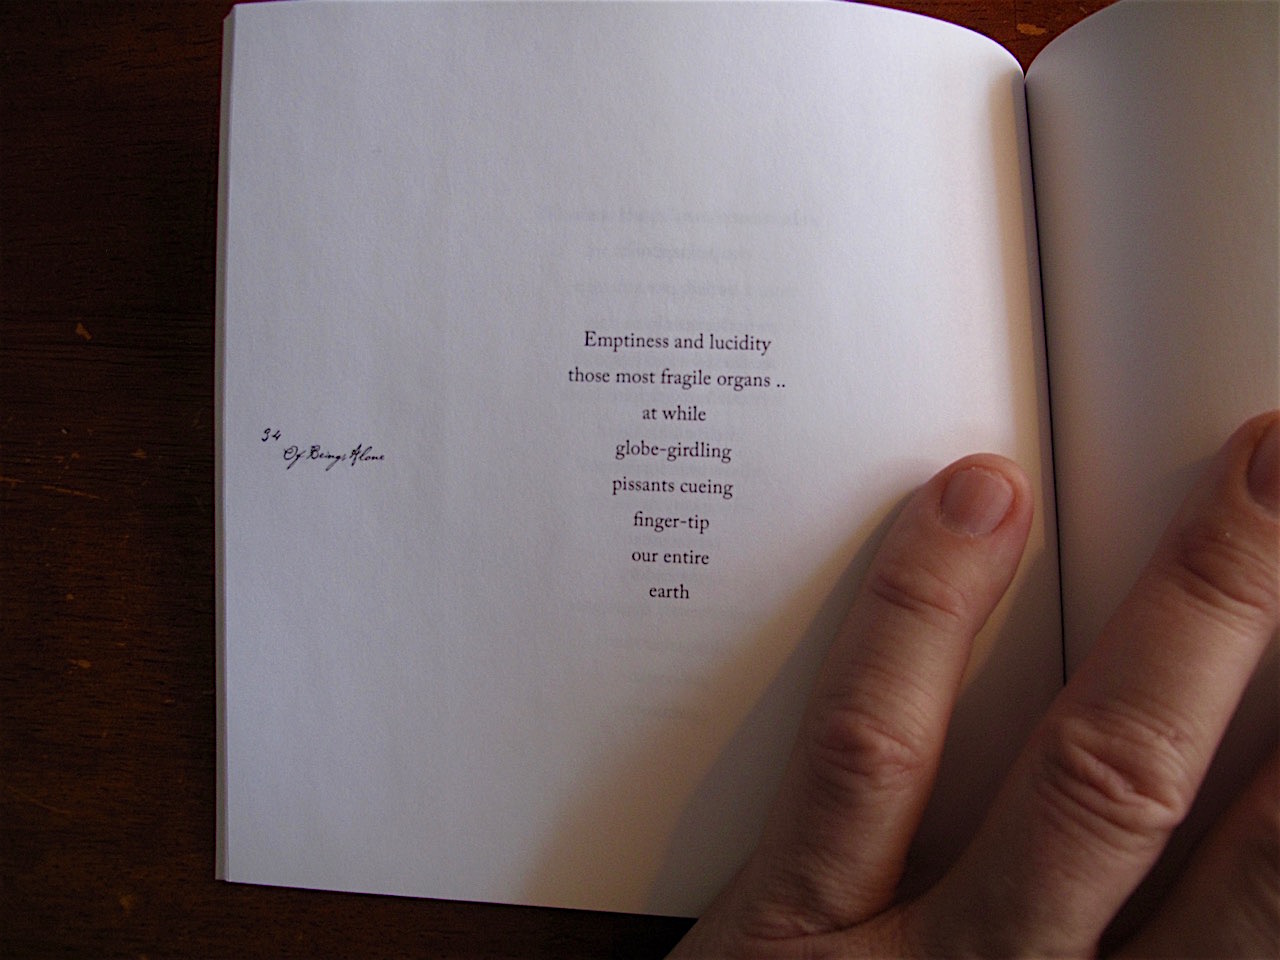 Emptiness and lucidity
those most fragile organs ..
at while
globe-girdling
pissants cueing
finger-tip
our entire
earth
94
Of Beings Alone